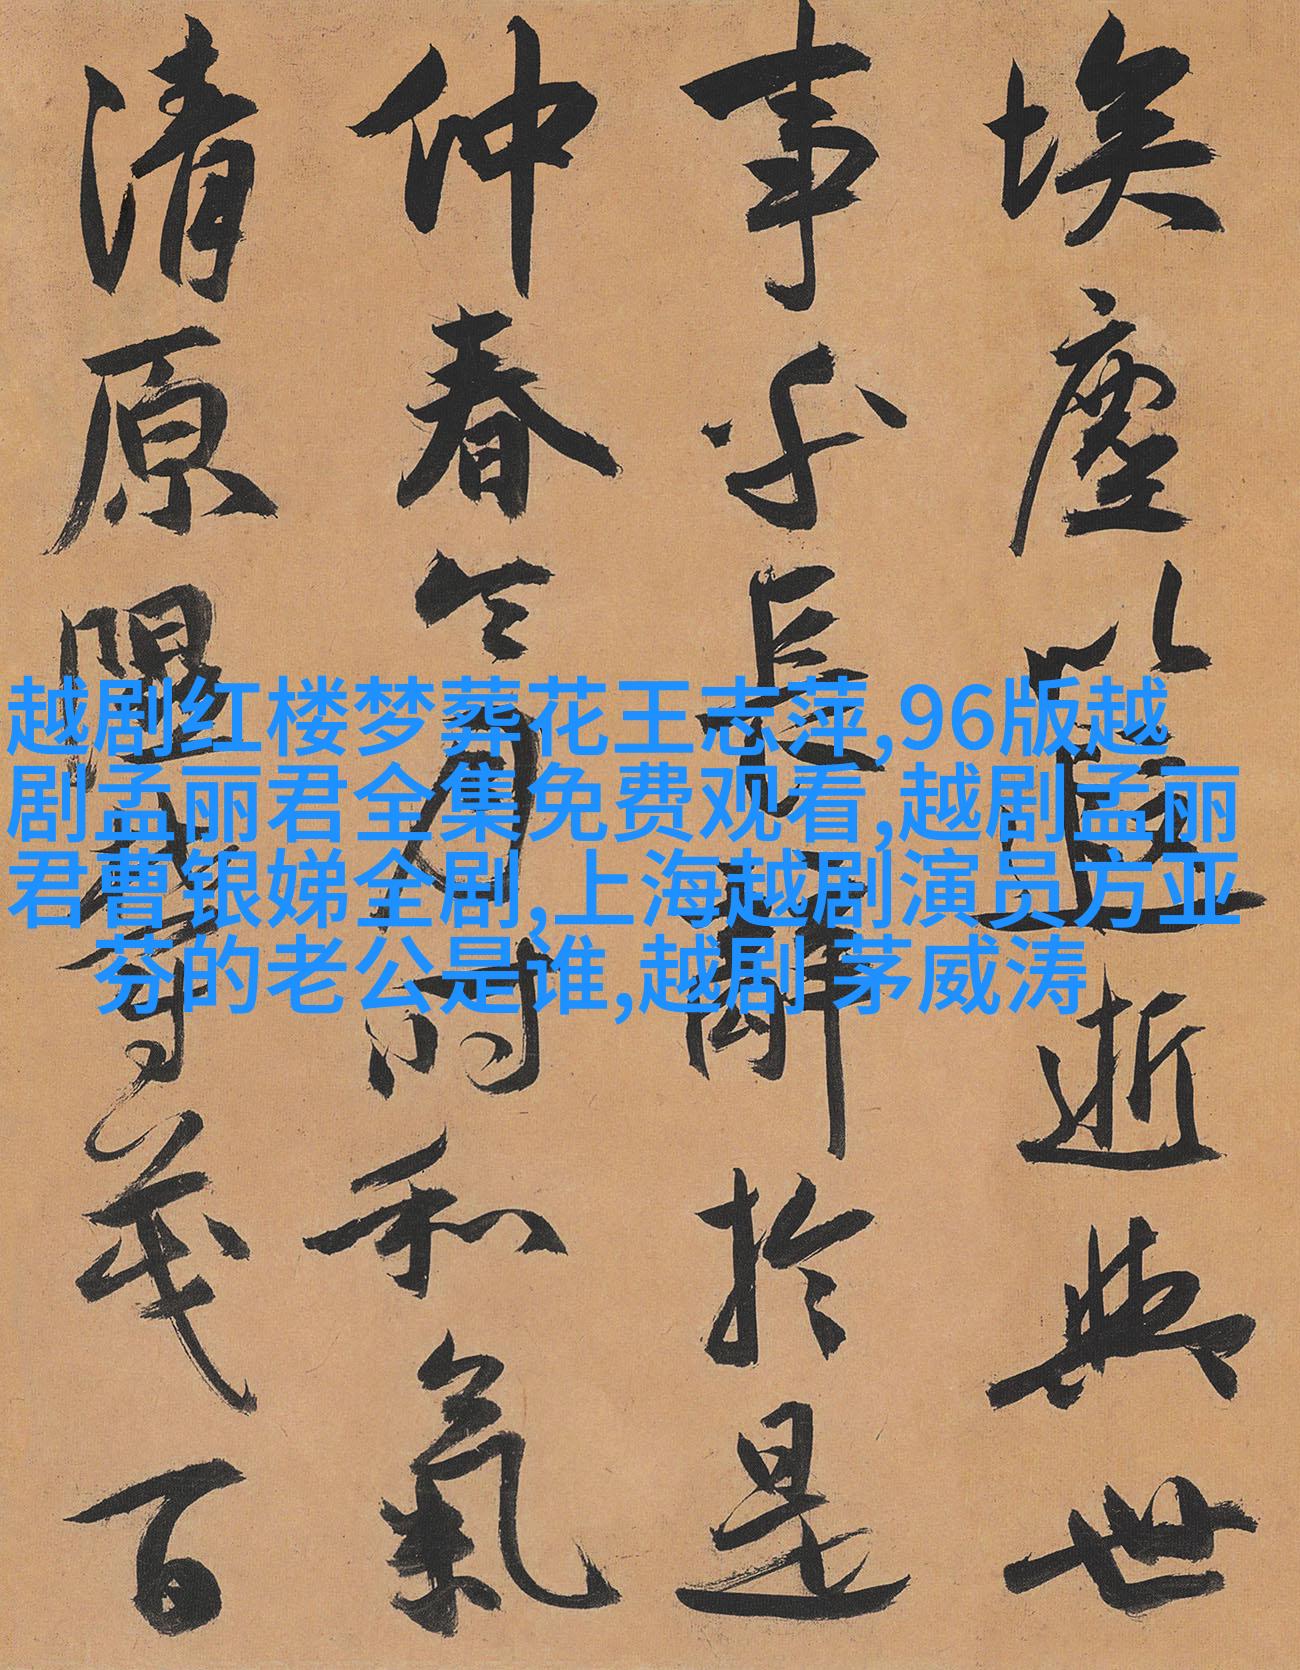 埃塵以遐逝與世
事乎長辭於是
仲春令月時和氣
清原隰茂百
越剧红楼梦葬花王志萍,96版越
剧孟丽君全集免费观看,越剧孟丽
君曹银娣全剧,上海越剧演员方亚
芬的老公是谁,越剧 茅威涛